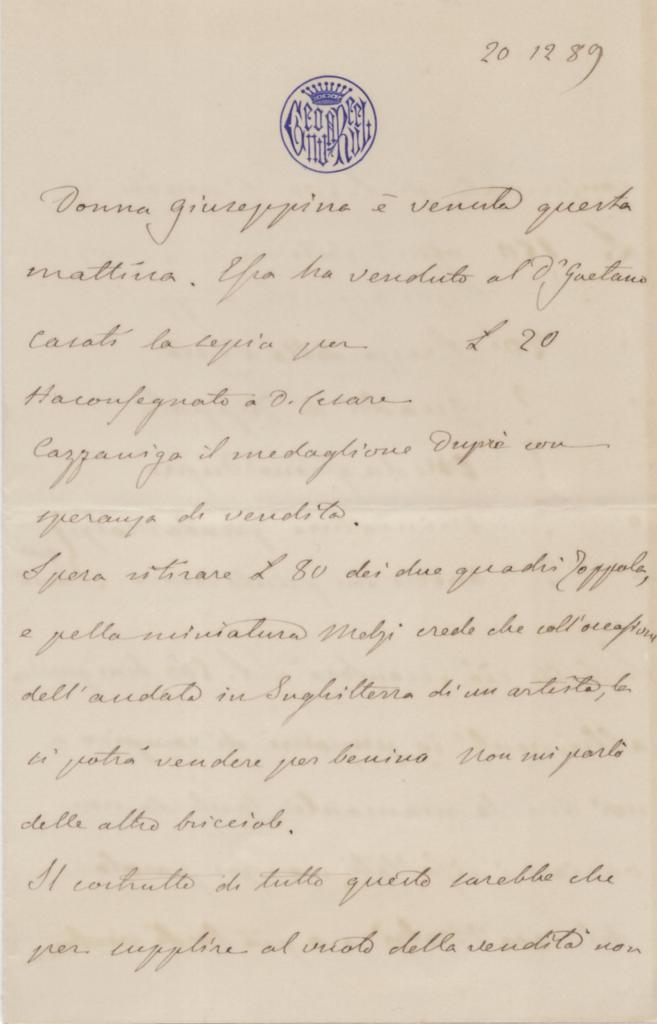 20 12 89
Donna Giuseppina è venuta questa
mattina. Essa ha venduto al Dr Gaetano
Casati la sepia per L 20
Ha consegnato a D. Cesare
Cazzaniga il medaglione Dupré con
speranza di vendita.
Spera ritirare L 80 dei due quadri
e pella miniatura Melzi crede che coll'occasione
dell'andata in Inghilterra di un artista, la
si potrà vendere per benino Non mi parlò
delle altre bricciole.
Il costrutto di tutto questo sarebbe che
per supplire al vuoto della vendita non